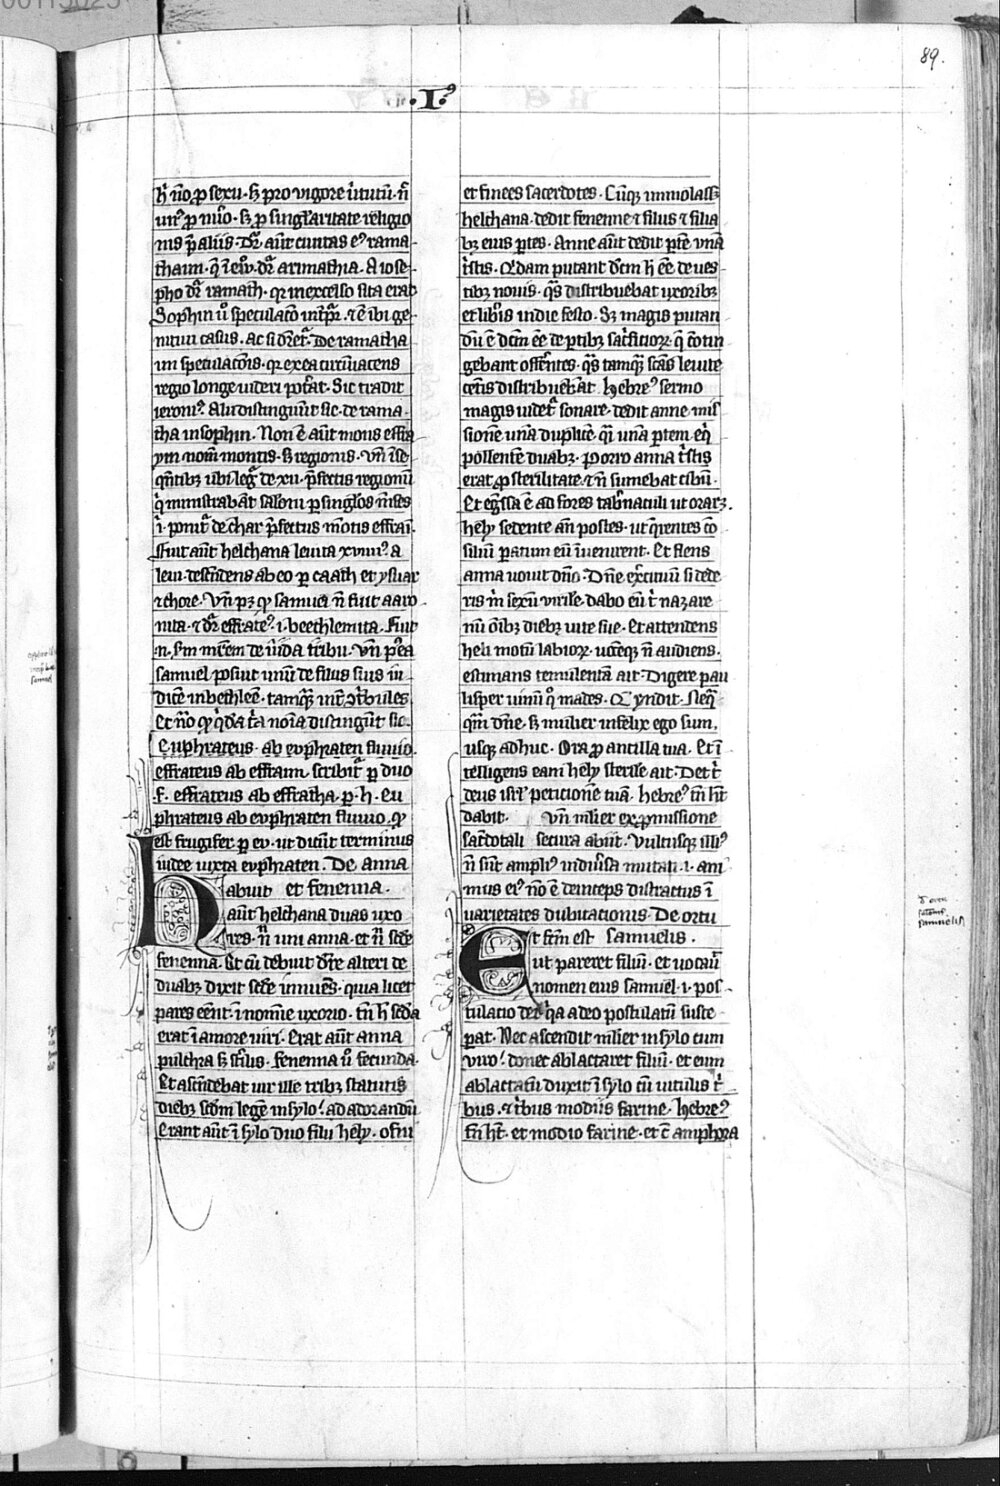 89.
.I.
hͥ nͦo ꝓ sexu. sꝫ pro vigore ùtutū. n̄
unꝰ ꝓ nūo. sꝫ ꝓ singl'aritate religio
nis p̄ aliis. Dr̄ aūt ciuitas eiꝰ rama
thaim. q̄ ī euͣ. dr̄ arimathia. A iose
pho dr̄ ramath. qr in excelso sita erat
Sophin ū speculatō int̄p̄r. ⁊ ē ibi ge
nitiui casus. ac si dr̄et. De ramatha
im speculatōis. qr ex ea circūiacens
regio longe uideri pot̄at. Sic tradit
ieroniꝰ. Alii distinguūt sic. de rama
tha in sophin. Non ē aūt mons effra
ym nom̄ montis. sꝫ regionis. Vn̄ ī se
qn̄tibꝫ ubi leḡ de xii. p̄fectis regionū
q̇ ministrabāt salom̄ p singl'os m̄ses
ī. ponit̄ de char p̄fectus mōtis effraī.
Fuit aūt helchana leuita xviiiꝰ. a
leui. descēdens ab eo p caath et ysuar
⁊ chore. Vn̄ pꝫ ꝙ samuel n̄ fuit aaro
nita. ⁊ dr̄ effrateꝰ. i. beethlemita. Fuit
.n. s̄m m̄rem de iuda tribu. Vn̄ p̄ea
samuel posuit unū de filiis suis iu
dicē in bethleē. tamqͣ int̄ ꝯt̄bules
Et nͦo ꝙ qͥda t̄ta noīa distingūt sic.
Euphrateus. ab euphraten fluuio.
effrateus ab effraim. scribit̄ p duo
.f. effrateus ab effratha. p. h. eu
phrateus ab euphraten fluuio. ꝙ
est frugifer. p eu. ut dicūt terminus
iudee iuxta euphraten. De anna
Habuit et fenenna.
aūt helchana duas uxo
res. n̄ uni anna. et n̄ scd'e
fenenna. Et cū debuit dr̄e alteri de
duabꝫ dixit scd'e innuēs. quia licet
pares eēnt. ī nomine uxorio. tn̄ h̄ scd'a
erat ī amore uiri. Erat aūt anna
pulchra sꝫ st'ilis. Fenenna ū fecunda.
Et ascēdebat uir ille tribꝫ statutis
diebꝫ scd'm legē in sylo. ad adorandū
Erant aūt ī sylo duo filii hely. ofni
et finees sacerdotes. Cūqꝫ immolass̄
helchana. dedit fenenne ⁊ filiis ⁊ filia
bꝫ eius ꝑtes. Anne aūt dedit ꝑtē unā
t̄stis. Qͥdam putant dc̄m h̄ eē de ues
tibꝫ nouis. qͣs distribuebat uxoribꝫ
et lib'is in die festo. Sꝫ magis putan
dū ē dc̄m eē de ꝑtibꝫ sac̄ficioꝝ. q̄ ꝯtin
gebant offer̄ntes. qͣs tamqͣ scās leuite
cet̄is distribuebāt. Hebreꝰ sermo
magis uidet̄ sonare. dedit anne mis
sionē unā duplicē. qͣi unā ꝑtem eq̄
pollentē duabꝫ. Porro anna t̄stis
erat ꝓ sterilitate. ⁊ n̄ sumebat cibū.
Et eḡssa ē ad fores tab'naculi ut oraꝫ.
hely sedente an̄ postes. ut qͣrentes cō
siliū ꝑatum eū īuenirent. Et flens
anna uouit dn̄o. Dn̄e ex̄cituū si dede
ris m̄ sexū virile. dabo eū t̄ nazare
nū oībꝫ diebꝫ uite sue. Et attendens
heli motū labioꝝ. uocēqꝫ n̄ audiens.
estimans temulentā ait. Digere pau
lisper uinū qͦ mades. Q̄ rn̄dit. Neq̄
qͣm dn̄e. sꝫ mulier infelix ego sum.
usqꝫ adhuc. Ora ꝓ ancilla tua. Et ī
telligens eam hely sterile ait. Det t̄
deus isrl' peticionē tuā. hebreꝰ tn̄ ht̄
dabit. Vn̄ mlier ex ꝓmissione
sac̄dotali secura abiit. Vultusqꝫ illiꝰ
n̄ sūt ampliꝰ in diūsa mutati. i. ani
mus eiꝰ nͦo ē deinceps distractus ī
uarietates dubitationis. De ortu
Et fc̄m est samuelis.
ut pareret filiū. et uocaū
nomen eius samuel. i. pos
tulatio dei. qͥa a deo postulatū susce
ꝑat. Nec ascendit mlier in sylo cum
viro. donec ablactaret filiū. et eum
ablactatū duxit ī sylo cū uitulis t̄
bus. ⁊ t̄bus modiis farine. hebreꝰ
tn̄ ht̄. et modio farine. et c̄ amphora